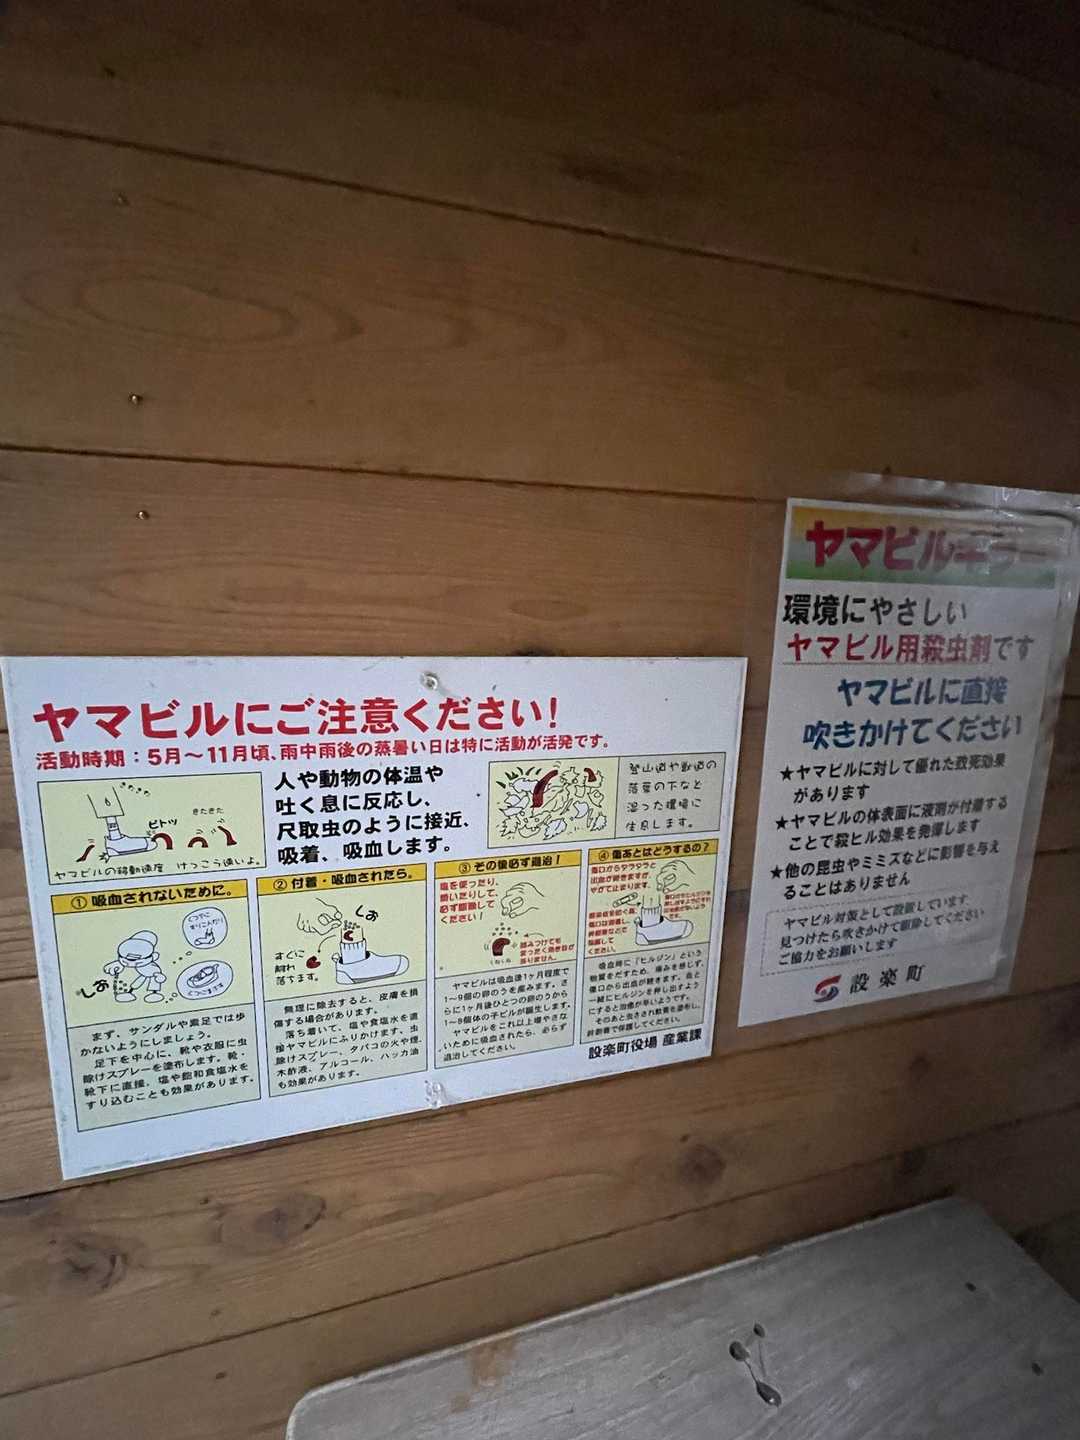 ヤマビルにご注意ください!
活動時期：5月〜11月頃、雨中雨後の蒸暑い日は特に活動が活発です。
きたきた
ピトッ
ヤマビルの移動速度 けっこう速いよ。
人や動物の体温や
吐く息に反応し、
尺取虫のように接近、
吸着、吸血します。
登山道や獣道の
落葉の下など
湿った環境に
生息します。
① 吸血されないために。
しお
まず、サンダルや素足では歩
かないようにしましょう。
足下を中心に、靴や衣服に虫
除けスプレーを塗布します。靴・
靴下に直接、塩や飽和食塩水を
すり込むことも効果があります。
② 付着・吸血されたら。
しお
すぐに
離れ
落ちます。
無理に除去すると、皮膚を損
傷する場合があります。
落ち着いて、塩や食塩水を直
接ヤマビルにふりかけます。虫
除けスプレー、タバコの火や煙、
木酢液、アルコール、ハッカ油
も効果があります。
③ その後必ず退治!
塩を使ったり、
焼いたりして、
必ず駆除して
ください!
踏みつけても
まったく効き目が
ありません。
ヤマビルは吸血後1ヶ月程度で
1〜9個の卵のうを産みます。さ
らに1ヶ月後ひとつの卵のうから
1〜8個体の子ビルが誕生します。
ヤマビルをこれ以上増やさな
いために吸血されたら、必らず
退治してください。
④ 傷あとはどうするの?
傷口からダラダラと
出血が続きますが、
やがて止まります。
吸血時に「ヒルジン」という
物質をだすため、痛みを感じず、
傷口から出血が続きます。血と
一緒にヒルジンを押し出すよう
にすると治癒が早いようです。
そのあと虫さされ軟膏を塗布し、
絆創膏で保護してください。
設楽町役場 産業課
ヤマビルキラー
環境にやさしい
ヤマビル用殺虫剤です
ヤマビルに直接
吹きかけてください
★ヤマビルに対して優れた致死効果
があります
★ヤマビルの体表面に液剤が付着する
ことで殺ヒル効果を発揮します
★他の昆虫やミミズなどに影響を与え
ることはありません
ヤマビル対策として設置しています
見つけたら吹きかけて駆除してください
ご協力をお願いします
設楽町